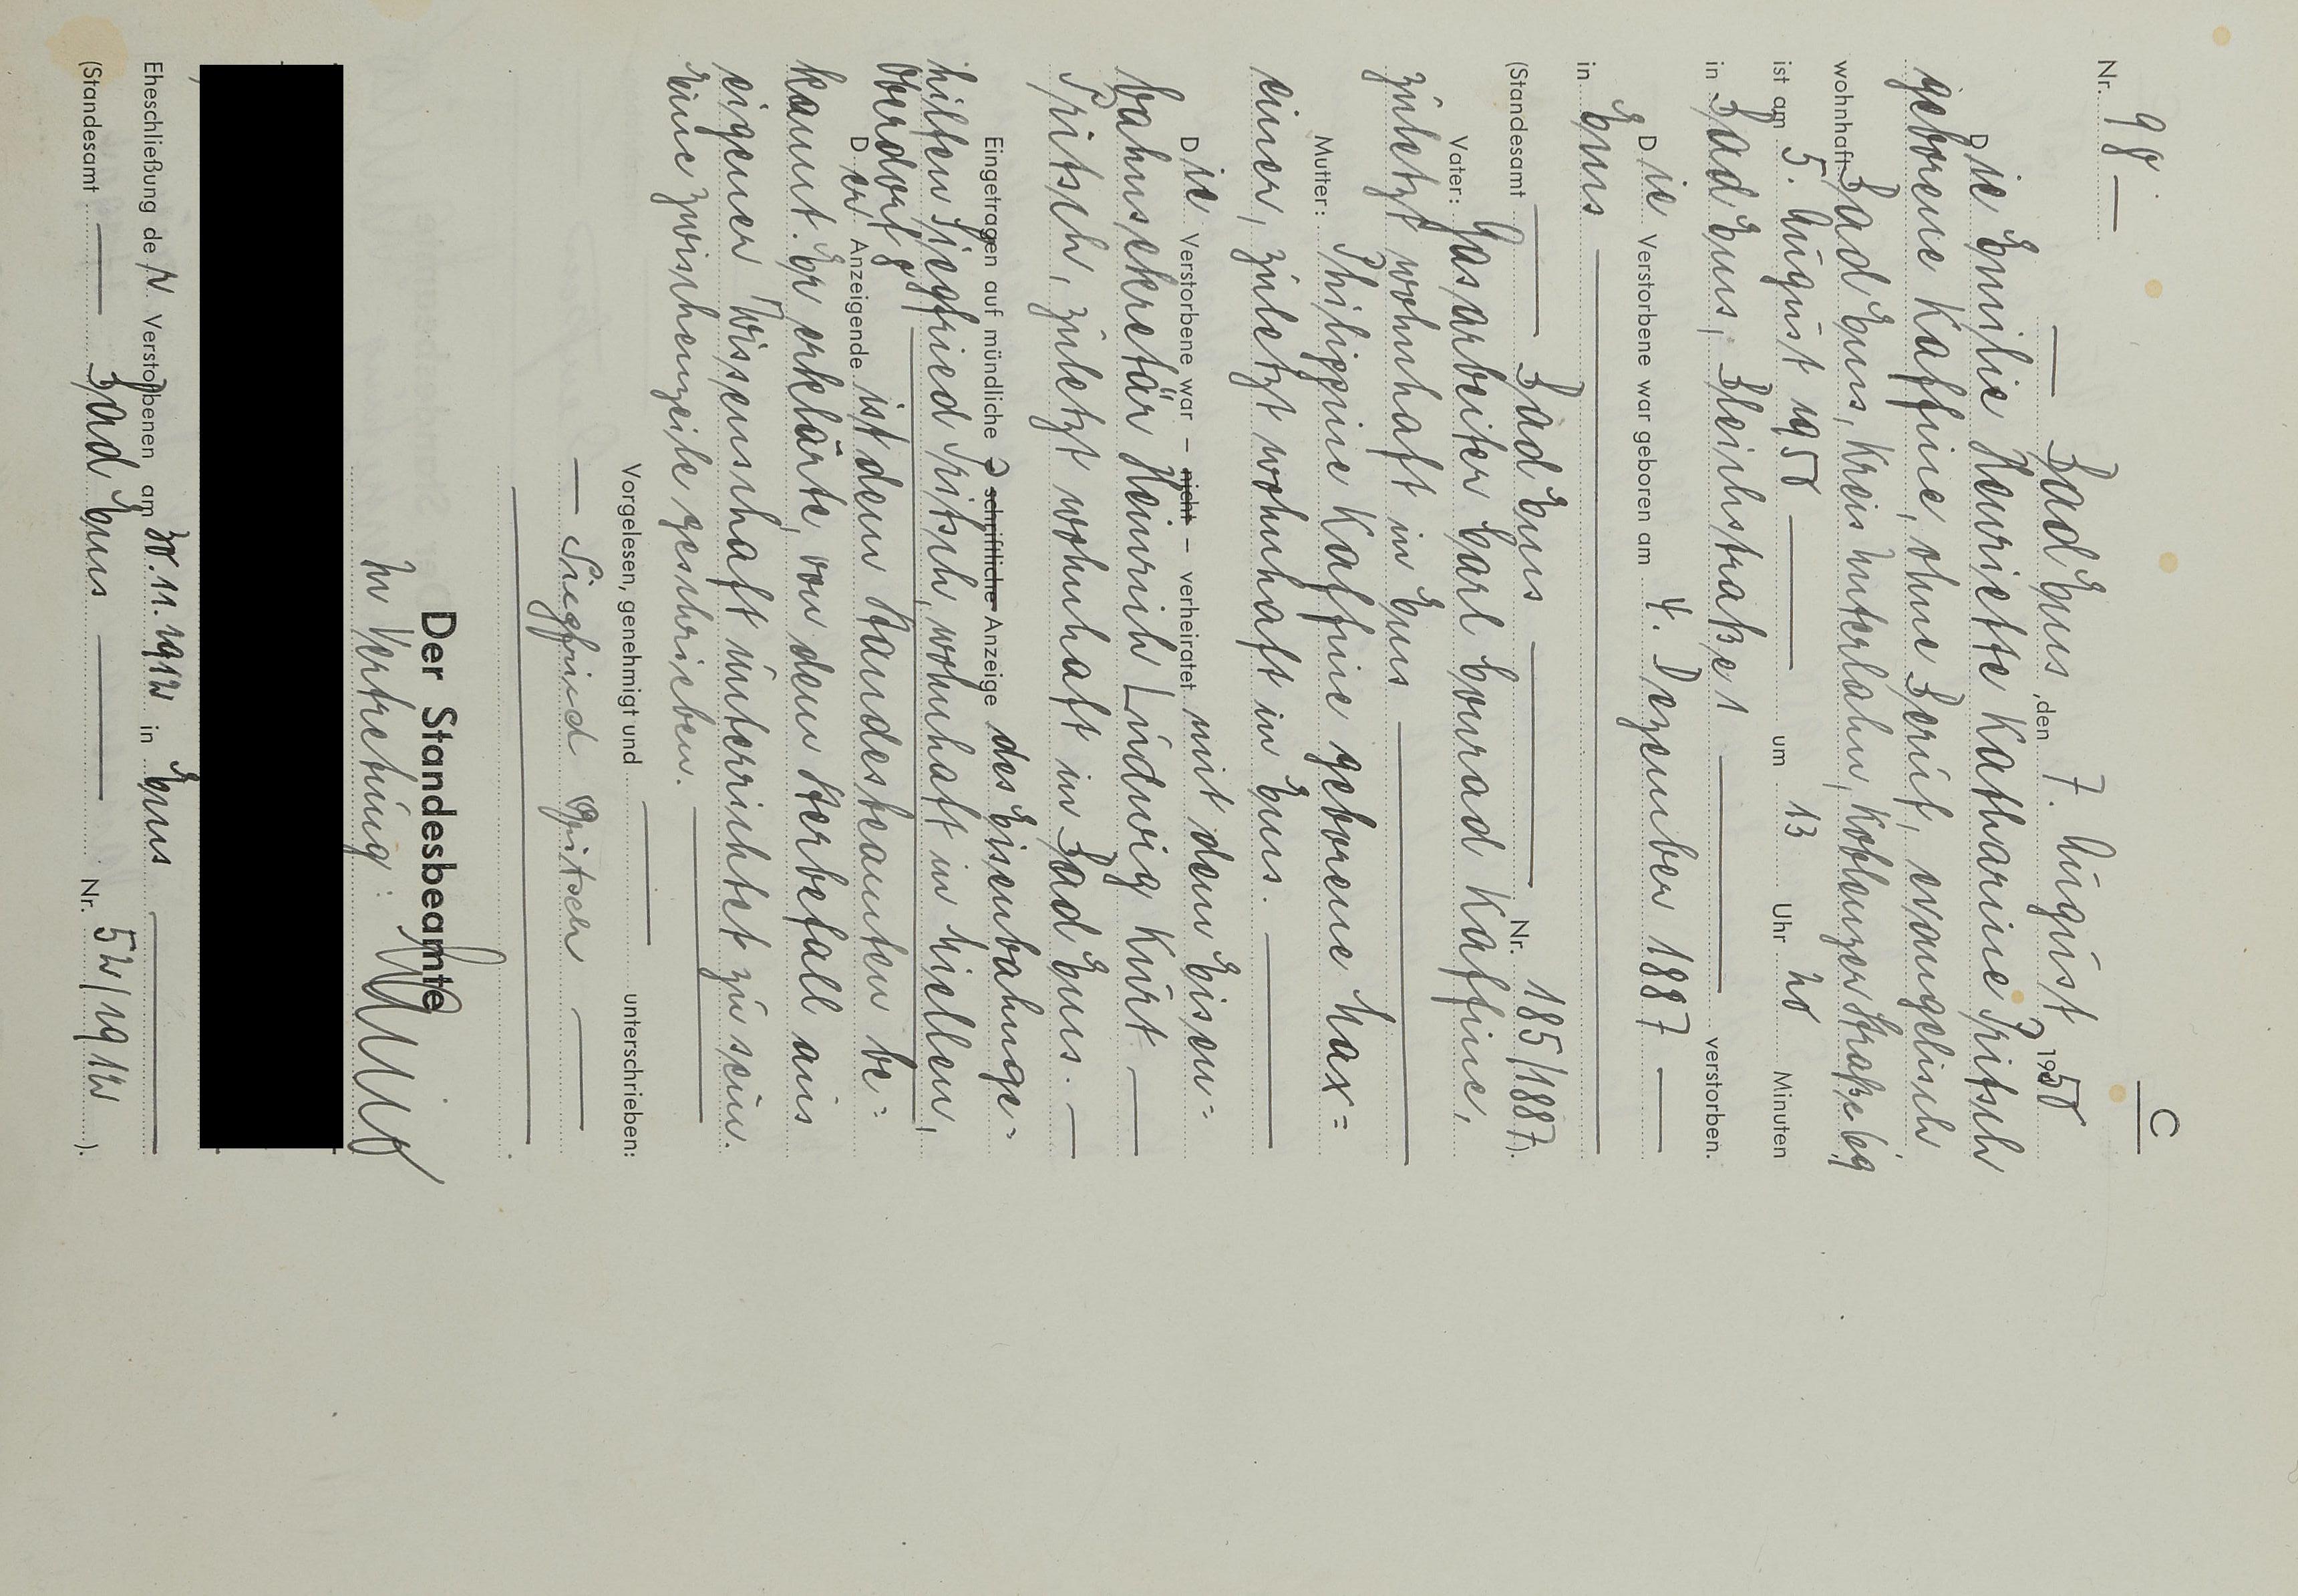 C
Nr. 98.
Bad Ems, den 7. August 1950
Die Emilie Henriette Katharine Fritsch
geborene Kaffine, ohne Beruf, evangelisch
wohnhaft Bad Ems, Kreis Unterlahn, Koblenzer Straße 69
ist am 5. August 1950 um 13 Uhr 20 Minuten
in Bad Ems, Bleichstraße 1 verstorben.
Die Verstorbene war geboren am 4. Dezember 1887
in Ems
(Standesamt Bad Ems Nr. 185/1887).
Vater: Gasarbeiter Carl Conrad Kaffine,
zuletzt wohnhaft in Ems
Mutter: Philippine Kaffine geborene Hax=
einer, zuletzt wohnhaft in Ems.
Die Verstorbene war – nicht – verheiratet mit dem Eisen=
bahnsekretär Heinrich Ludwig Kurt
Fritsch, zuletzt wohnhaft in Bad Ems.
Eingetragen auf mündliche – schriftliche Anzeige des Eisenbahnge=
hilfen Siegfried Fritsch, wohnhaft in
Oberdorf
Der Anzeigende ist dem Standesbeamten be=
kannt. Er erklärte, von dem Sterbefall aus
eigener Wissenschaft unterrichtet zu sein.
Eine Zwischenzeile geschrieben.
Vorgelesen, genehmigt und unterschrieben:
Siegfried Fritsch
Der Standesbeamte
In Vertretung:
Eheschließung der Verstorbenen am 30.11.1912 in Ems
(Standesamt Bad Ems Nr. 52/1912).